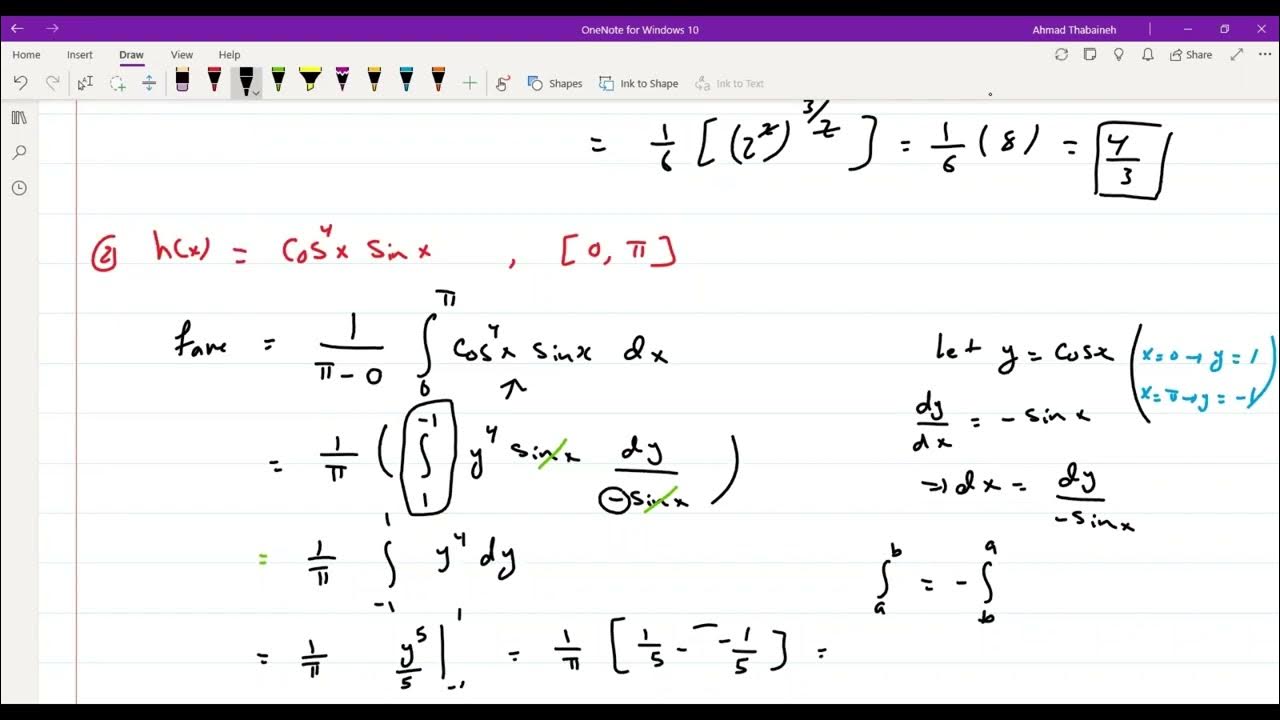 OneNote for Windows 10
Ahmad Thabaineh
Home Insert Draw View Help
Share
Shapes Ink to Shape Ink to Text
= 1/6 [ (2^2)^{3/2} ] = 1/6 (8) = 4/3
② h(x) = cos^4 x sin x , [0, π]
fave = 1/(π - 0) ∫_0^π cos^4 x sin x dx
let y = cos x ( x = 0 → y = 1
x = π → y = -1 )
dy/dx = - sin x
= 1/π ( ∫_1^{-1} y^4 sin x dy/(- sin x) )
⇒ dx = dy/(- sin x)
= 1/π ∫_{-1}^1 y^4 dy
∫_a^b = - ∫_b^a
= 1/π y^5/5 |_{-1}^1 = 1/π [ 1/5 - - 1/5 ] =